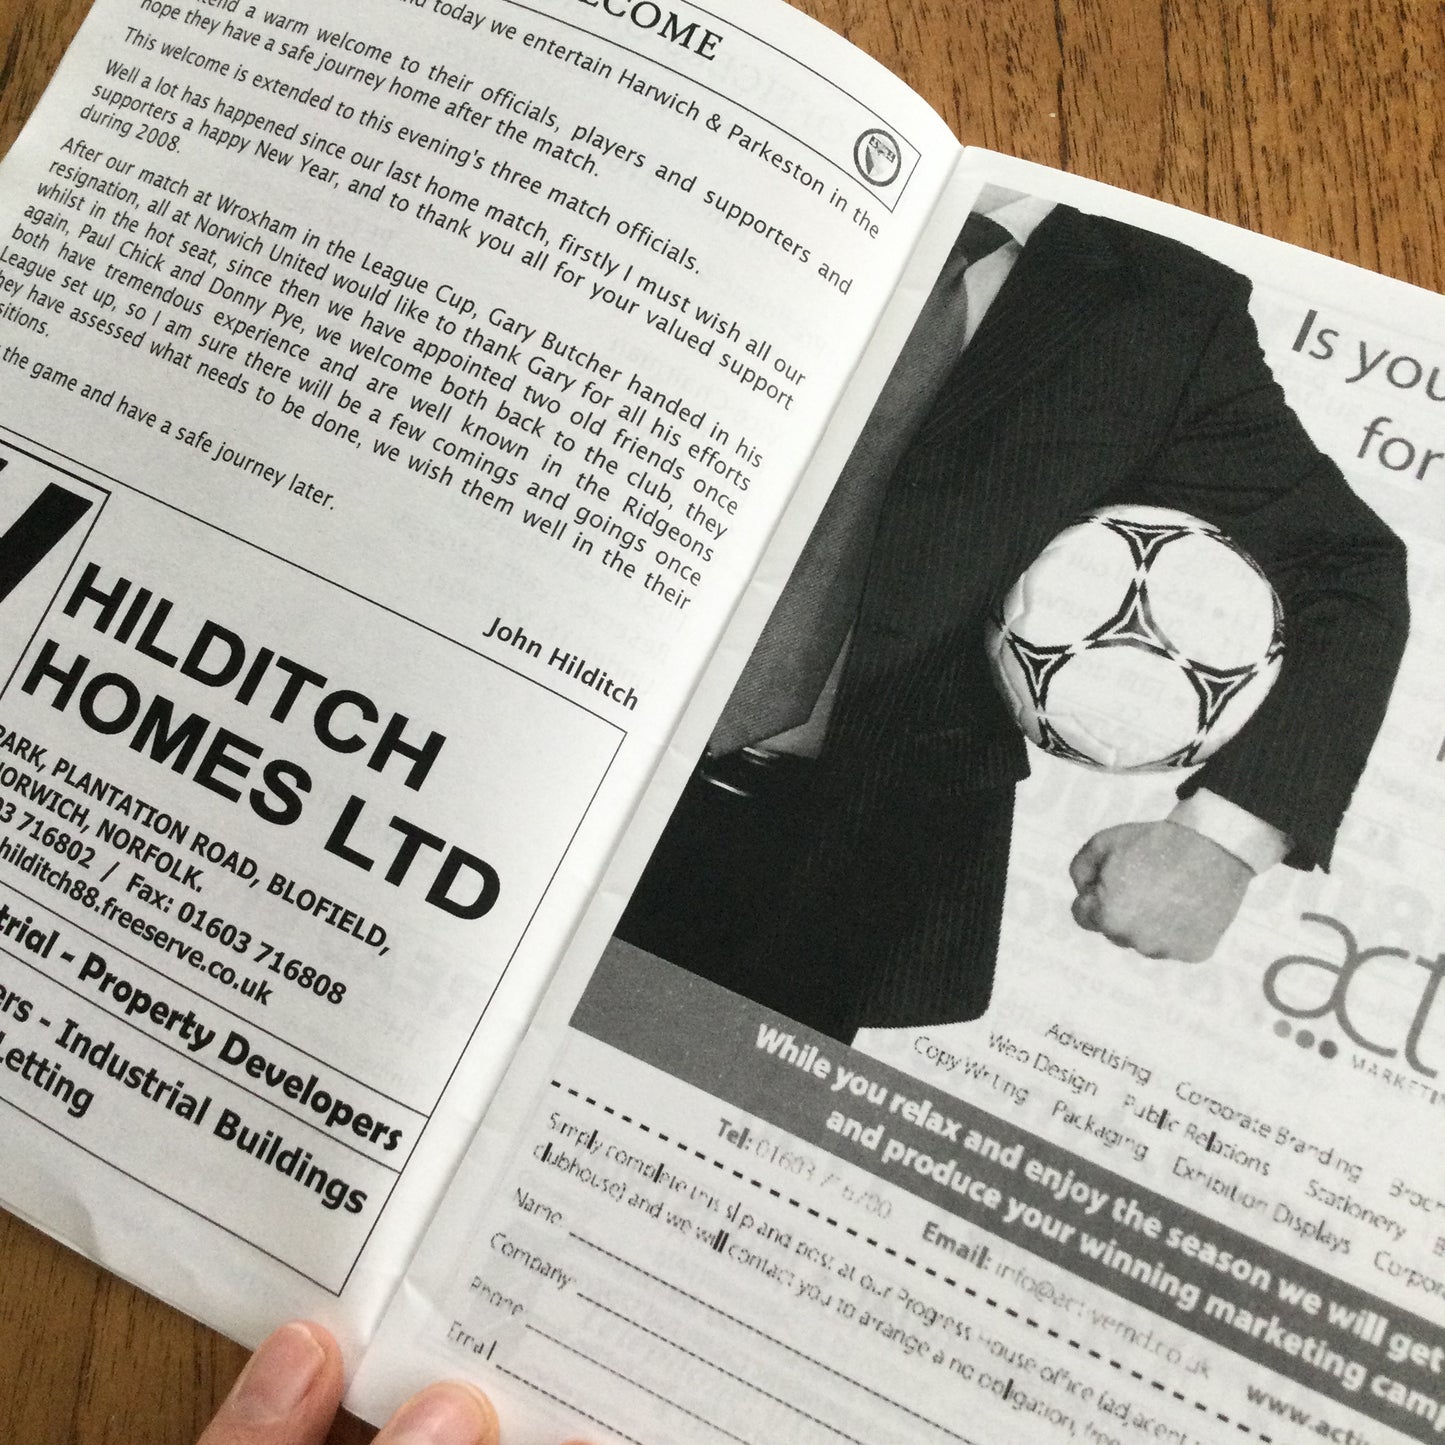 WELCOME
and today we entertain Harwich & Parkeston in the
extend a warm welcome to their officials, players and supporters and
hope they have a safe journey home after the match.
This welcome is extended to this evening's three match officials.
Well a lot has happened since our last home match, firstly I must wish all our
supporters a happy New Year, and to thank you all for your valued support
during 2008.
After our match at Wroxham in the League Cup, Gary Butcher handed in his
resignation, all at Norwich United would like to thank Gary for all his efforts
whilst in the hot seat, since then we have appointed two old friends once
again, Paul Chick and Donny Pye, we welcome both back to the club, they
both have tremendous experience and are well known in the Ridgeons
League set up, so I am sure there will be a few comings and goings once
they have assessed what needs to be done, we wish them well in the their
the game and have a safe journey later.
John Hilditch
HILDITCH
HOMES LTD
PARK, PLANTATION ROAD, BLOFIELD,
NORWICH, NORFOLK.
716802 / Fax: 01603 716808
hilditch88.freeserve.co.uk
- Property Developers
- Industrial Buildings
Letting
Is you
for
act
MARKETIN
Advertising Corporate Branding Broch
Web Design Public Relations Stationery
Copy Writing Packaging Exhibition Displays Corpor
While you relax and enjoy the season we will get
and produce your winning marketing camp
Tel: 01603 Email: www.acti
Simply complete this slip and post at our Progress House office (adjacent
clubhouse) and we will contact you to arrange a no obligation, free
Name
Company
Phone
Email